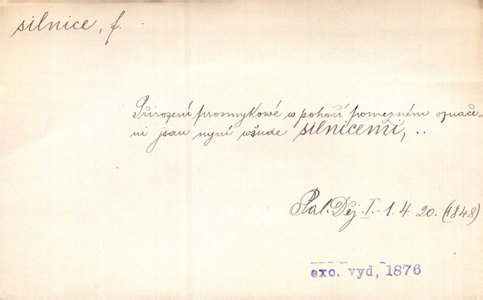 silnice, f.
Přirození prosmykové w pohoří pomezném označe-
ni jsau nyní wšude silnicemi, ..
Pal. Děj. I. 1. 4 20. (1848)
exc. vyd, 1876